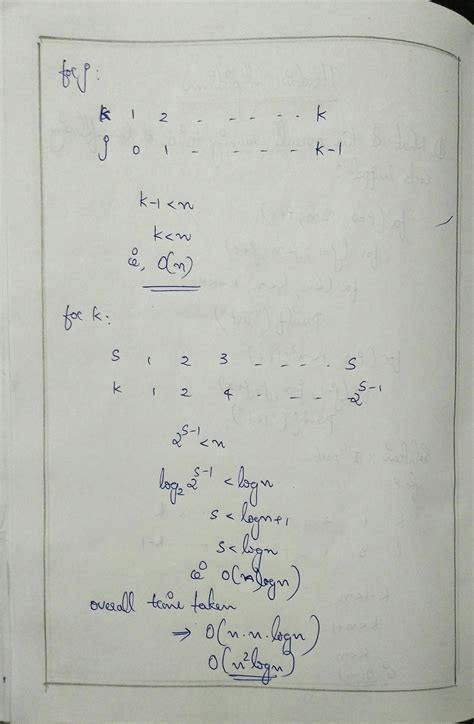 for j:
k 1 2 - - - - - - k
j 0 1 - - - - - - k-1
k-1 < n
k < n
ie, O(n)
for k:
S 1 2 3 - - - - - S
k 1 2 4 - - - - 2^{S-1}
2^{S-1} < n
log₂ 2^{S-1} < logn
S < logn+1
S < logn
ie O(logn)
overall time taken
⇒ O(n.n.logn)
O(n²logn)